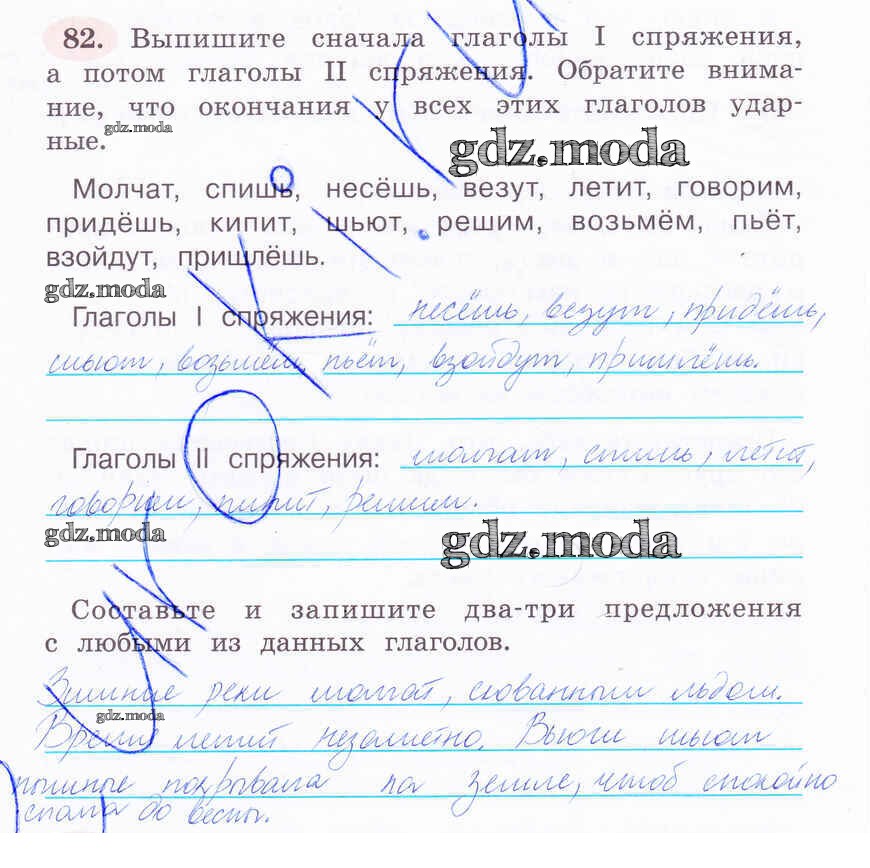 82. Выпишите сначала глаголы I спряжения,
а потом глаголы II спряжения. Обратите внима-
ние, что окончания у всех этих глаголов удар-
gdz.moda
ные.
gdz.moda
Молчат, спишь, несёшь, везут, летит, говорим,
придёшь, кипит, шьют, решим, возьмём, пьёт,
взойдут, пришлёшь.
gdz.moda
Глаголы I спряжения: несёшь, везут, придёшь,
шьют, возьмём, пьёт, взойдут, пришлёшь.
Глаголы II спряжения: молчат, спишь, летит,
говорим, кипит, решим.
gdz.moda
gdz.moda
Составьте и запишите два-три предложения
с любыми из данных глаголов.
Зимние реки молчат, скованным льдом.
gdz.moda
Время летит незаметно. Вьюги шьют
пышные покрывала на земле, чтоб спокойно
спала до весны.